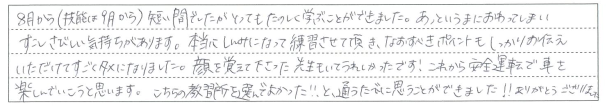 8月から(技能は9月から)短い間でしたがとってもたのしく学ぶことができました。あっというまにおわってしまい
すこしさびしい気持ちがあります。本当にしんみになって練習させて頂き、なおすべきポイントもしっかりお伝え
いただけてすごくタメになりました。顔を覚えて下さった先生もいてうれしかったです!これから安全運転で車を
楽しんでいこうと思います。こちらの教習所を選んでよかった!!と、通うたびに思うことができました!!ありがとうございました